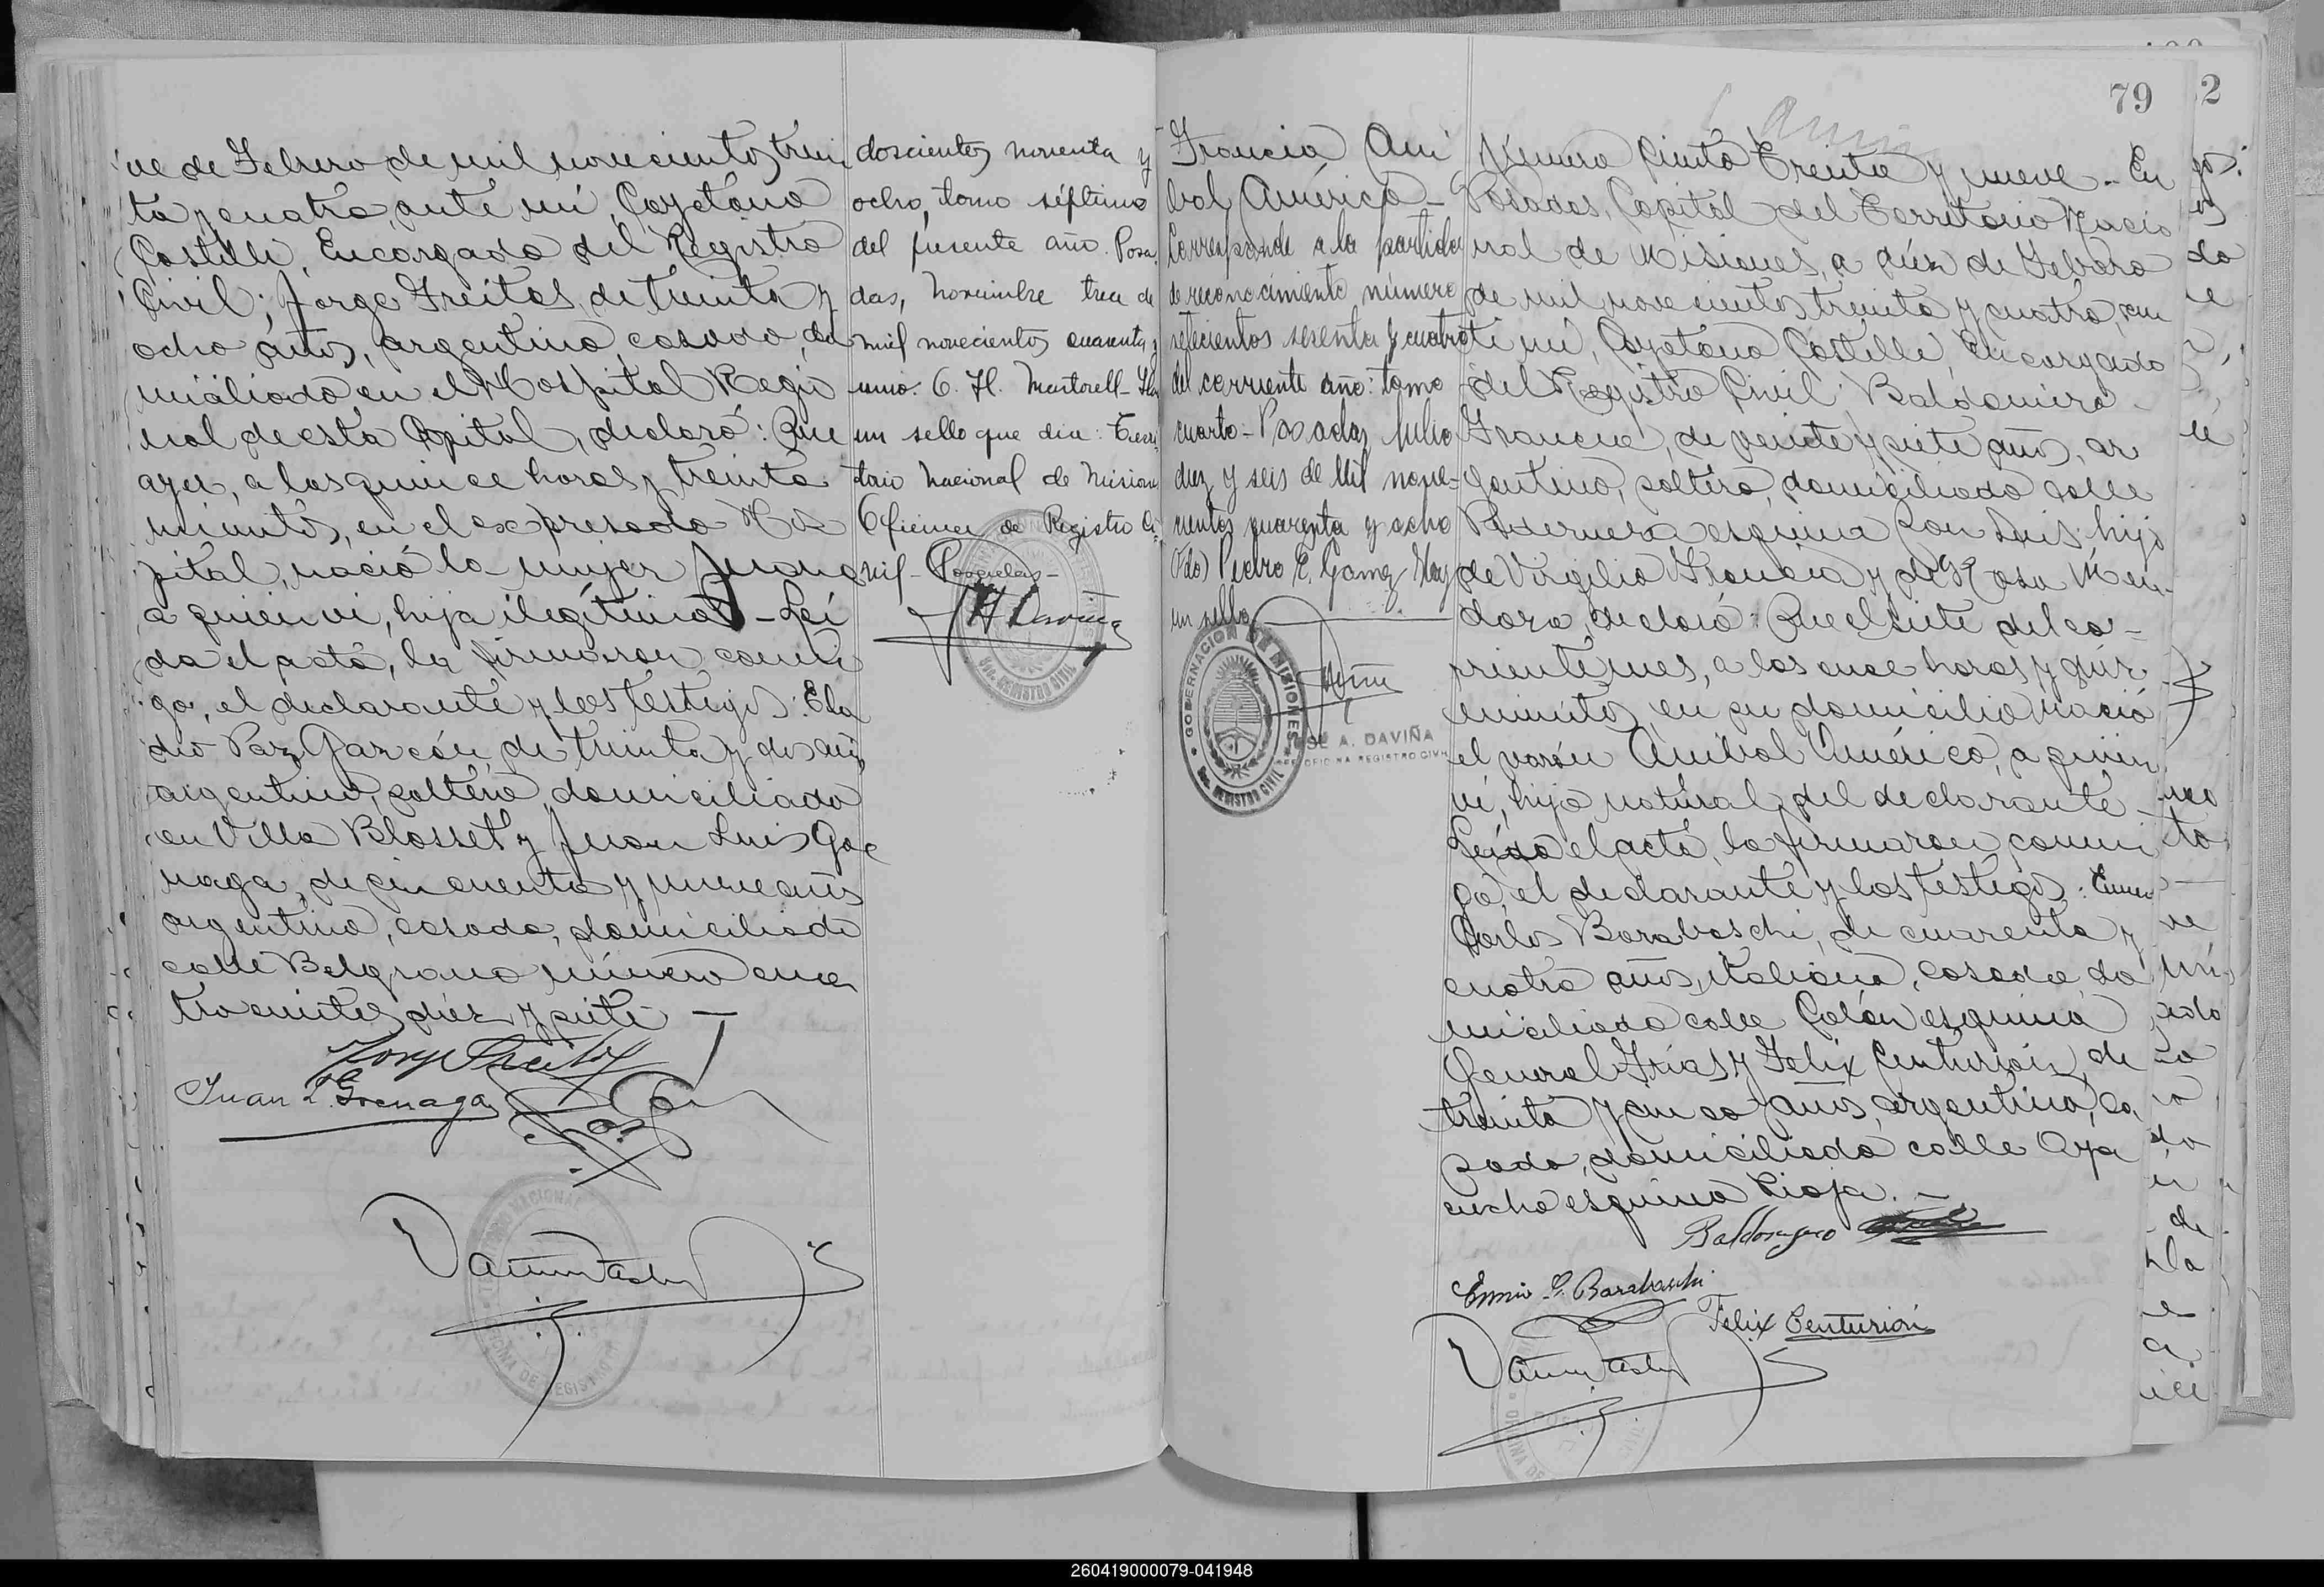 ve de Febrero de mil novecientos trein
ta y cuatro, ante mí, Cayetano
Castelli, Encargado del Registro
Civil; Jorge Freitas, de treinta y
ocho años, argentino, casado, do
miciliado en el Hospital Regio
nal de esta Capital, declaró: Que
ayer, a las quince horas y treinta
minutos, en el expresado Hos
pital, nació la mujer Juana
a quien vi, hija ilegítima - Leí
da el acta, la firmaron conmi
go, el declarante y los testigos: Ela
dio Paz Garzón, de treinta y dos años
argentino, soltero, domiciliado
en Villa Blosset y Juan Luis Goe
naga, de cincuenta y nueve años
argentino, casado, domiciliado
calle Belgrano número cua
trocientos diez y siete -
Jorge Freitas
Juan L. Goenaga
doscientos noventa y
ocho, tomo séptimo
del presente año. Posa
das, noviembre trece de
mil novecientos cuarenta y
uno. C. H. Martorell - Hay
un sello que dice: Terri
torio Nacional de Misiones
Oficina de Registro Ci-
vil - Posadas -
REGISTRO CIVIL
79
2
Francia Aní
bal Américo -
Corresponde a la partida
de reconocimiento número
setecientos sesenta y cuatro
del corriente año: tomo
cuarto - Posadas, Julio
diez y seis de Mil nove-
cientos cuarenta y ocho
(Fdo) Pedro E. Gomez Hay
un sello
GOBERNACION DE MISIONES
REGISTRO CIVIL
JOSE A. DAVIÑA
JEFE OFICINA REGISTRO CIVIL
Número Ciento Treinta y nueve - En
Posadas, Capital del Territorio Nacio
nal de Misiones, a diez de Febrero
de mil novecientos treinta y cuatro, an
te mí, Cayetano Castelli, Encargado
del Registro Civil: Baldomero
Francia, de veinte y siete años, ar
gentino, soltero, domiciliado calle
Pedernera esquina San Luis, hijo
de Virgilio Francia y de Rosa Men-
doza, declaró: Que el siete del co-
rriente mes, a las once horas y diez
minutos, en su domicilio nació
el varón Aníbal Américo, a quien
vi, hijo natural del declarante -
Leída el acta, la firmaron conmi
go, el declarante y los testigos: Ennio
Carlos Barabaschi, de cuarenta y
cuatro años, italiano, casado, do
miciliado calle Colón esquina
General Frías y Felix Centurión, de
treinta y cinco años, argentino, ca
sado, domiciliado calle Aya
cucho esquina Rioja. -
Baldomero
Ennio C. Barabaschi
Felix Centurión
260419000079-041948